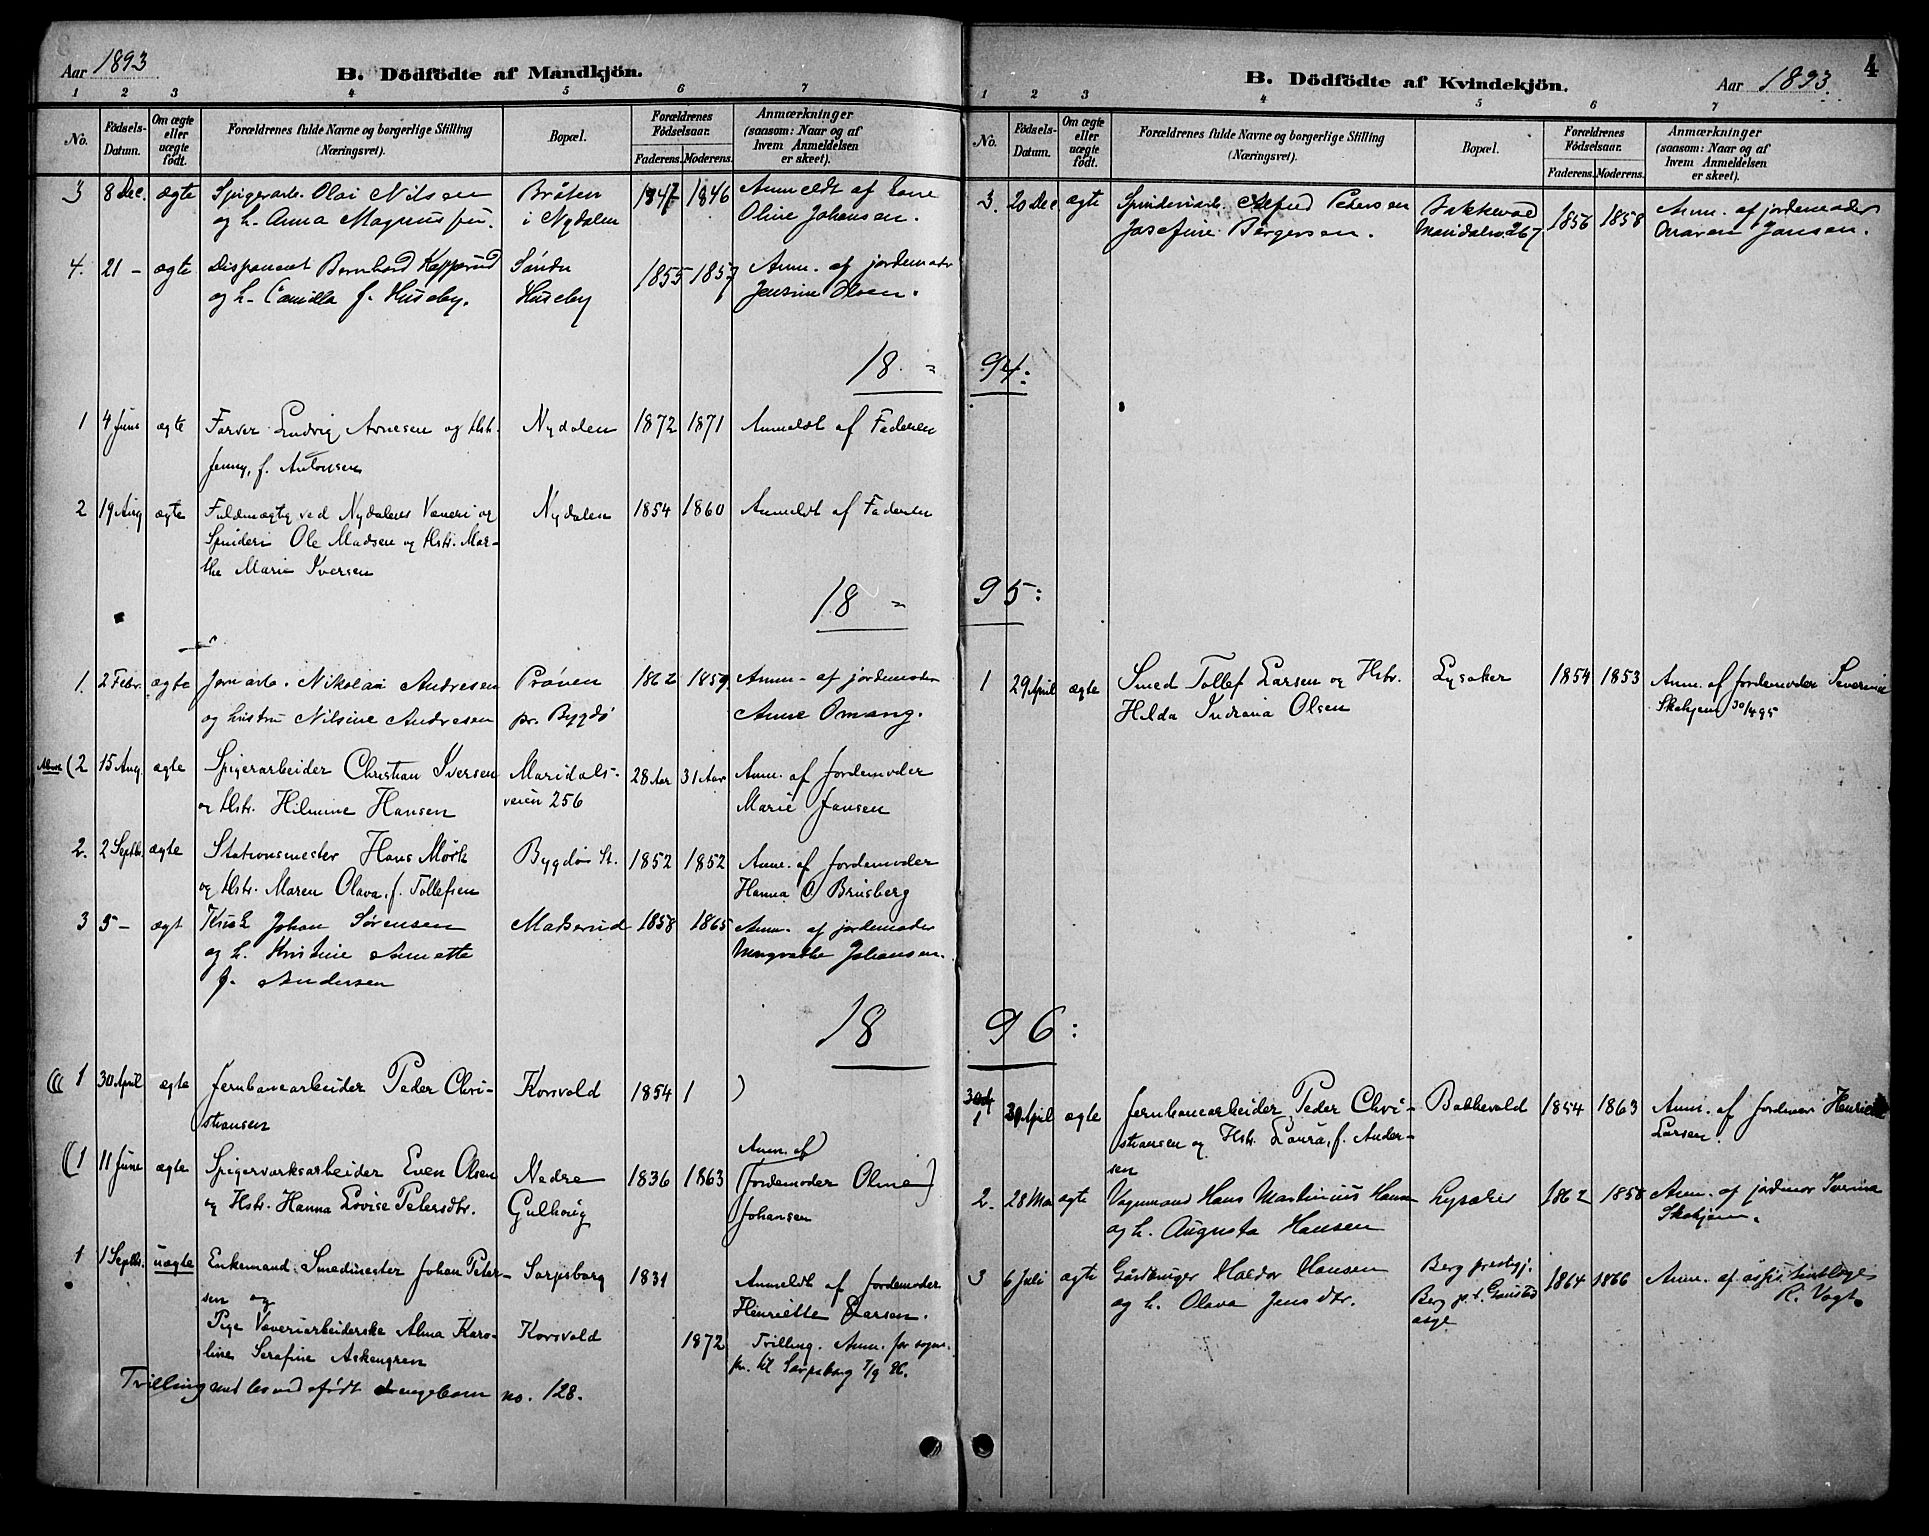 Aar 1893
B. Dödfödte af Mandkjön.
1 2 3 4 5 6 7
No.
Födsels-Datum.
Om ægte eller uægte födt.
Forældrenes fulde Navne og borgerlige Stilling (Næringsvei).
Bopæl.
Forældrenes Födselsaar.
Faderens. Moderens.
Anmærkninger (saasom: Naar og af hvem Anmeldelsen er skeet).
3 8 Dec. ægte Spigerarb. Olai Nilsen Bråten 1847 1846 Anmeldt af
og h. Anna Magnus i Nydalen Oline Johansen.
4. 21 - ægte Disponent Bernhard Kopperud Söndre 1855 1857 Anm. af jordemoder
og h. Camilla f. Huseby. Huseby Jensine Moen.
18
1 4 Juni ægte Farver Ludvig Arnesen og Hstr. Nydalen 1872 1871 Anmeldt af Faderen
Jenny, f. Antonsen
2 19 Aug ægte Fuldmægtig ved Nydalens Væveri og Nydalen 1854 1860 Anmeldt af Faderen
Spinderi Ole Madsen og Hstr. Mar-
the Marie Iversen
18
1. 2 Febr. ægte Jernarb. Nikolai Andresen Prøven 1862 1859 Anm. af jordemoder
og hustru Nilsine Andresen pr. Bygdö Anne Omang.
(2 15 Aug. ægte Spigerarbeider Christian Iversen Maridals- 28 Aar 31 Aar Anm. af Jordemoder
og Hstr. Hilmine Hansen veien 256 Marie Jansen
2. 2 Septbr. ægte Stationsmester Hans Mørk Bygdø St. 1852 1852 Anm. af Jordemoder
og Hstr. Maren Olava, f. Tollefsen Hanna O Brusberg
3 5 - ægt Kusk Johan Sørensen Maserud 1858 1865 Anm. af jordemoder
og h. Kristine Annette Margrethe Johansen.
f. Andersen
18
(( 1 30 April ægte Jernbanearbeider Peder Chri- Korsvold 1854 1 )
stiansen
(( 1 11 June ægte Spigerværksarbeider Even Olsen Nedre 1836 1863 Anm. af
og Hstr. Hanna Lovise Petersdtr. Gulhoug (Jordemoder Oline)
Johansen
1 1 Septbr. uægte Enkemand Smedmester Johan Peter- Sarpsborg 1831 Anmeldt af Jordemoder
sen og Henriette Larsen.
Pige Væveriarbeiderske Alma Karo- Korsvold 1872 Tvilling. Anm. for sogne-
line Serafine Askengren pr. til Sarpsborg 7/9 96.
Tvilling med levendefødt drengebarn no. 128.
4
B. Dödfödte af Kvindekjön.
Aar 1893.
1 2 3 4 5 6 7
No.
Födsels-Datum.
Om ægte eller uægte födt.
Forældrenes fulde Navne og borgerlige Stilling (Næringsvei).
Bopæl.
Forældrenes Födselsaar.
Faderens. Moderens.
Anmærkninger (saasom: Naar og af hvem Anmeldelsen er skeet).
3. 20 Dec ægte Spinderiarb. Alfred Pedersen Bakkevold 1856 1858 Anm. af jordemoder
Josefine Børgersen. Maridalsv. 267 Maren Jansen.
94:
95:
1 29 April ægte Smed Tollef Larsen og Hstr. Lysaker 1854 1853 Anm. af Jordemoder Severine
Hilda Indiana Olsen Skahjem 30/4 95
96:
1 30 April ægte Jernbanearbeider Peder Chri- Bakkevold 1854 1863 Anm. af Jordemor Henriette
stiansen og Hstr. Laura, f. Ander- Larsen.
sen
2. 28 Mai ægte Vognmand Hans Martinius Hansen Lysaker 1862 1858 Anm. af jordmor Severine
og h. Augusta Hansen Skahjem.
3 6 Juli ægte Gårdbruger Haldor Hansen Berg prestgj. 1864 1866 Anm. af assistentlæge
og h. Olava Jensdtr. Berg p.t. Gaustad R. Vogt.
asyl